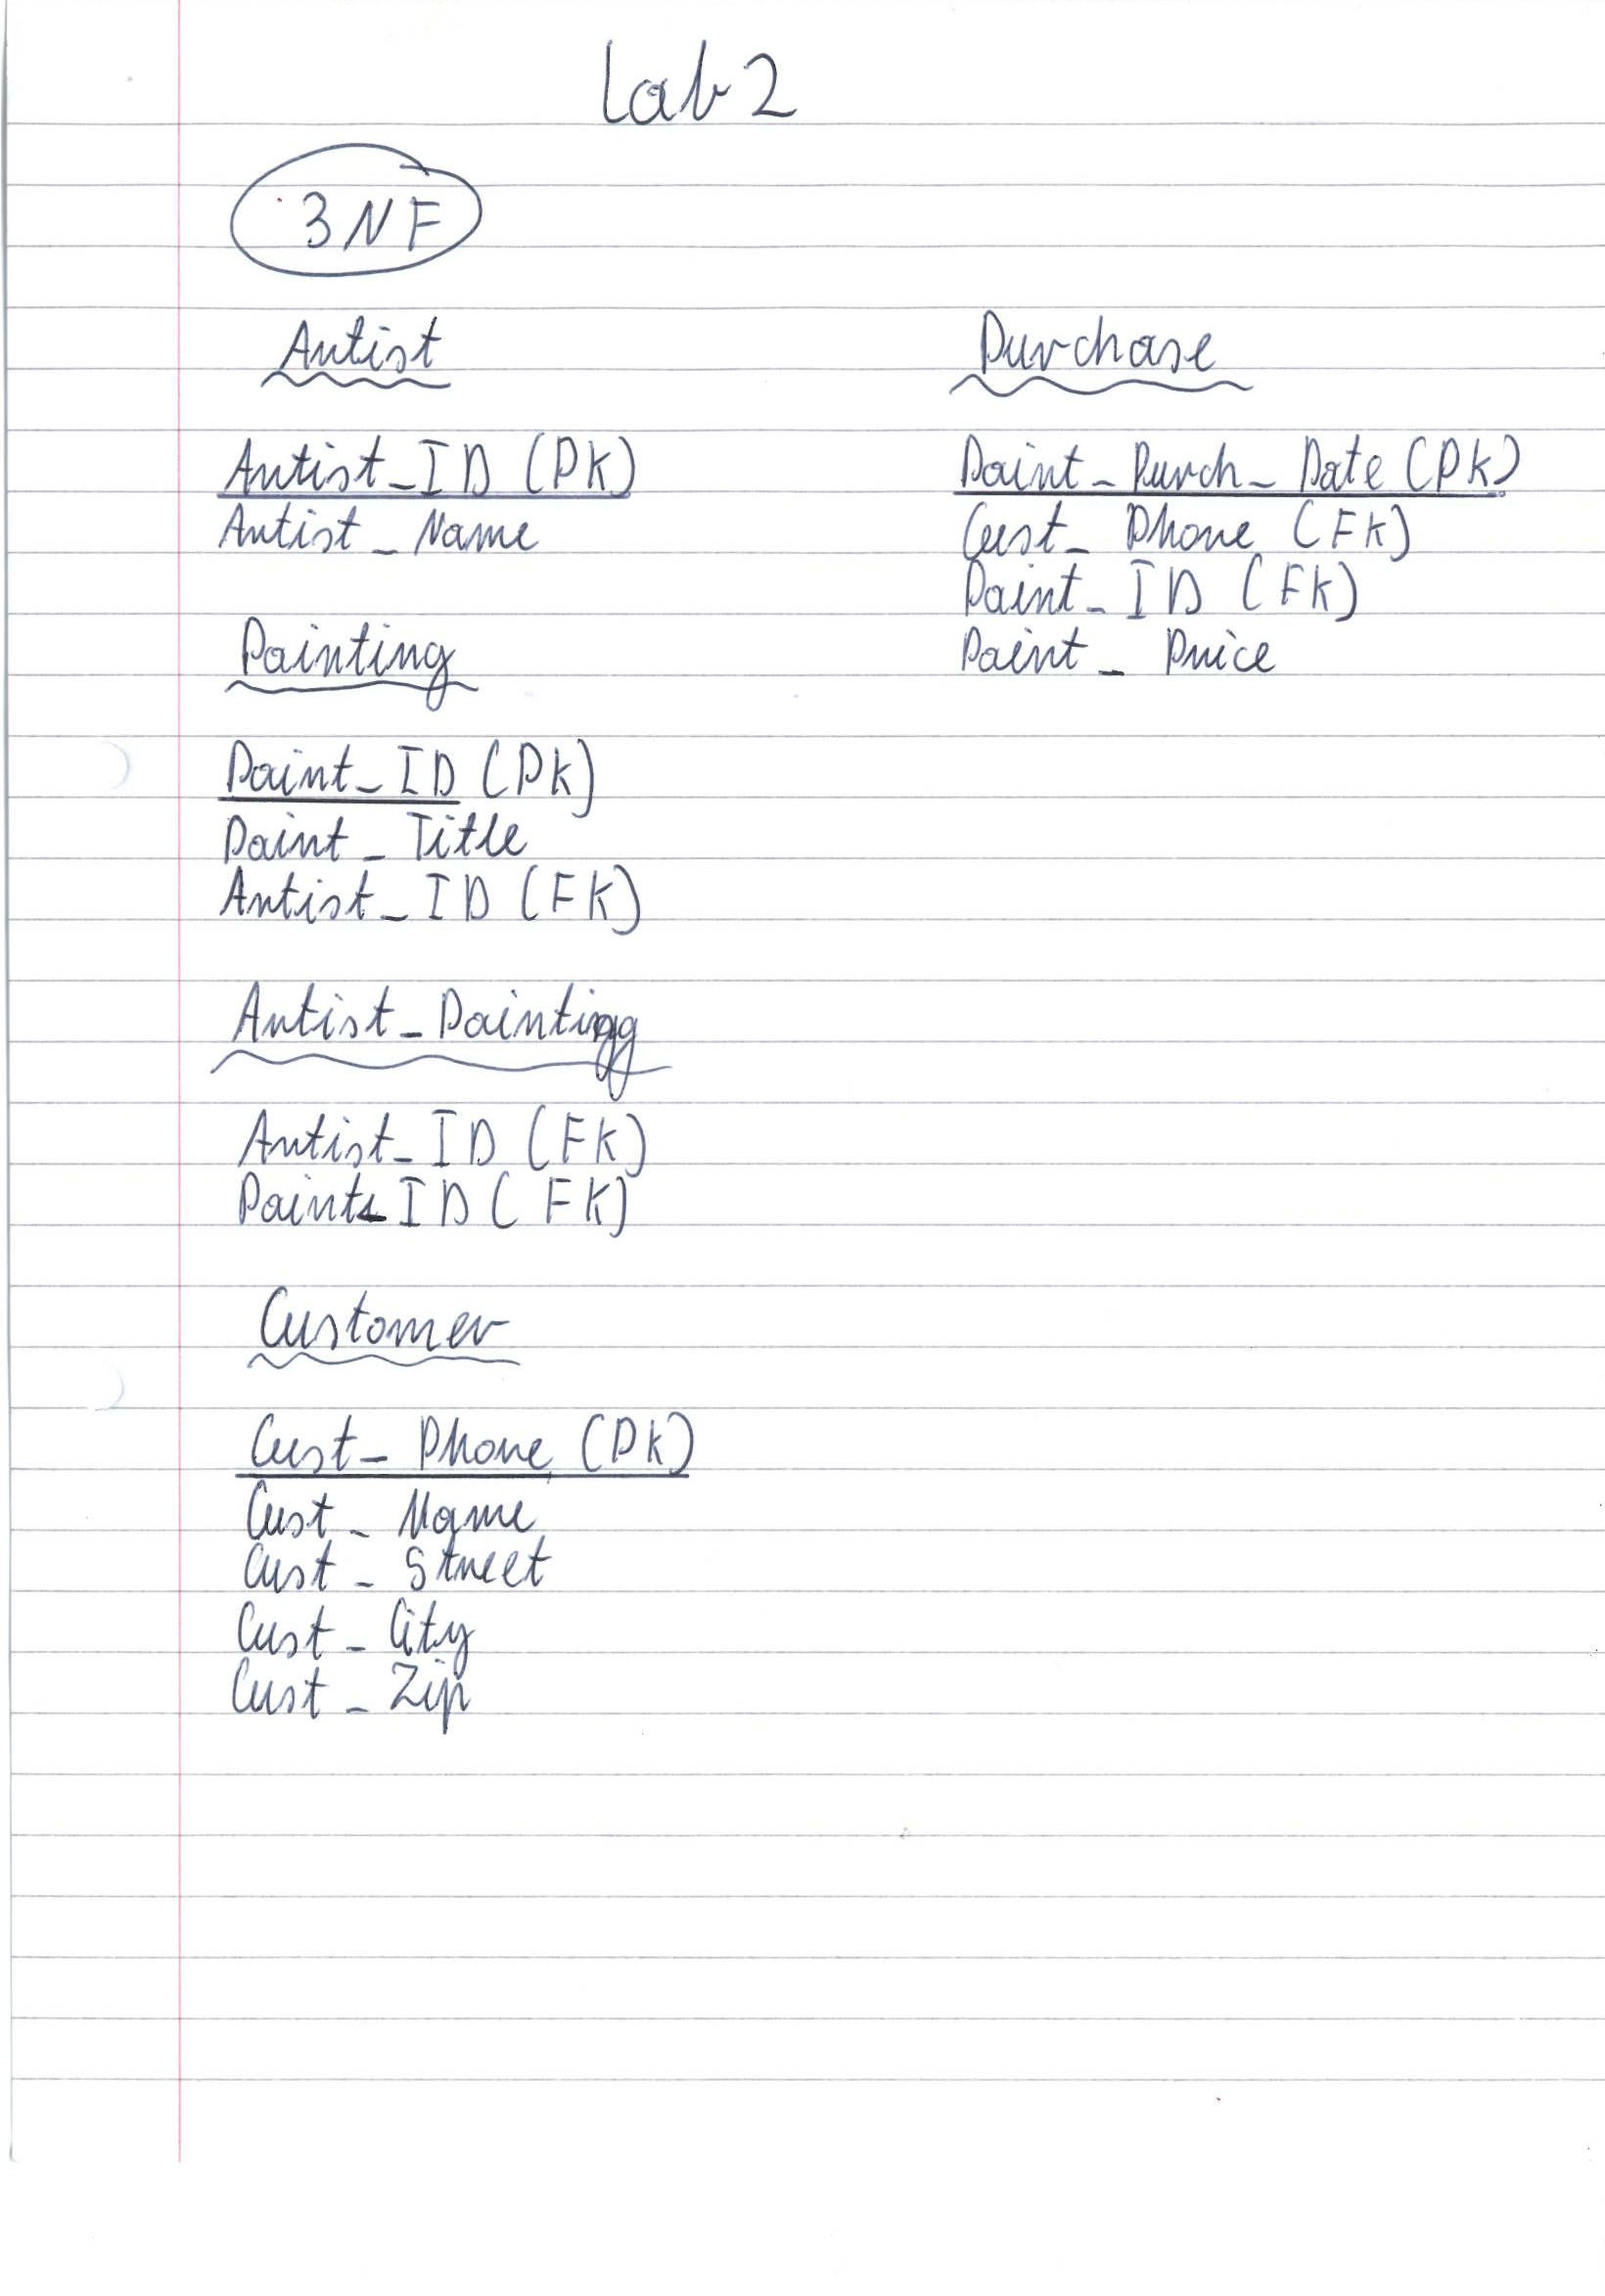 Lab 2
3NF
Artist
Artist_ID (PK)
Artist_Name
Painting
Paint_ID (PK)
Paint_Title
Artist_ID (FK)
Artist_Painting
Artist_ID (FK)
Paint_ID (FK)
Customer
Cust_Phone (PK)
Cust_Name
Cust_Street
Cust_City
Cust_Zip
Purchase
Paint_Purch_Date (PK)
Cust_Phone (FK)
Paint_ID (FK)
Paint_Price